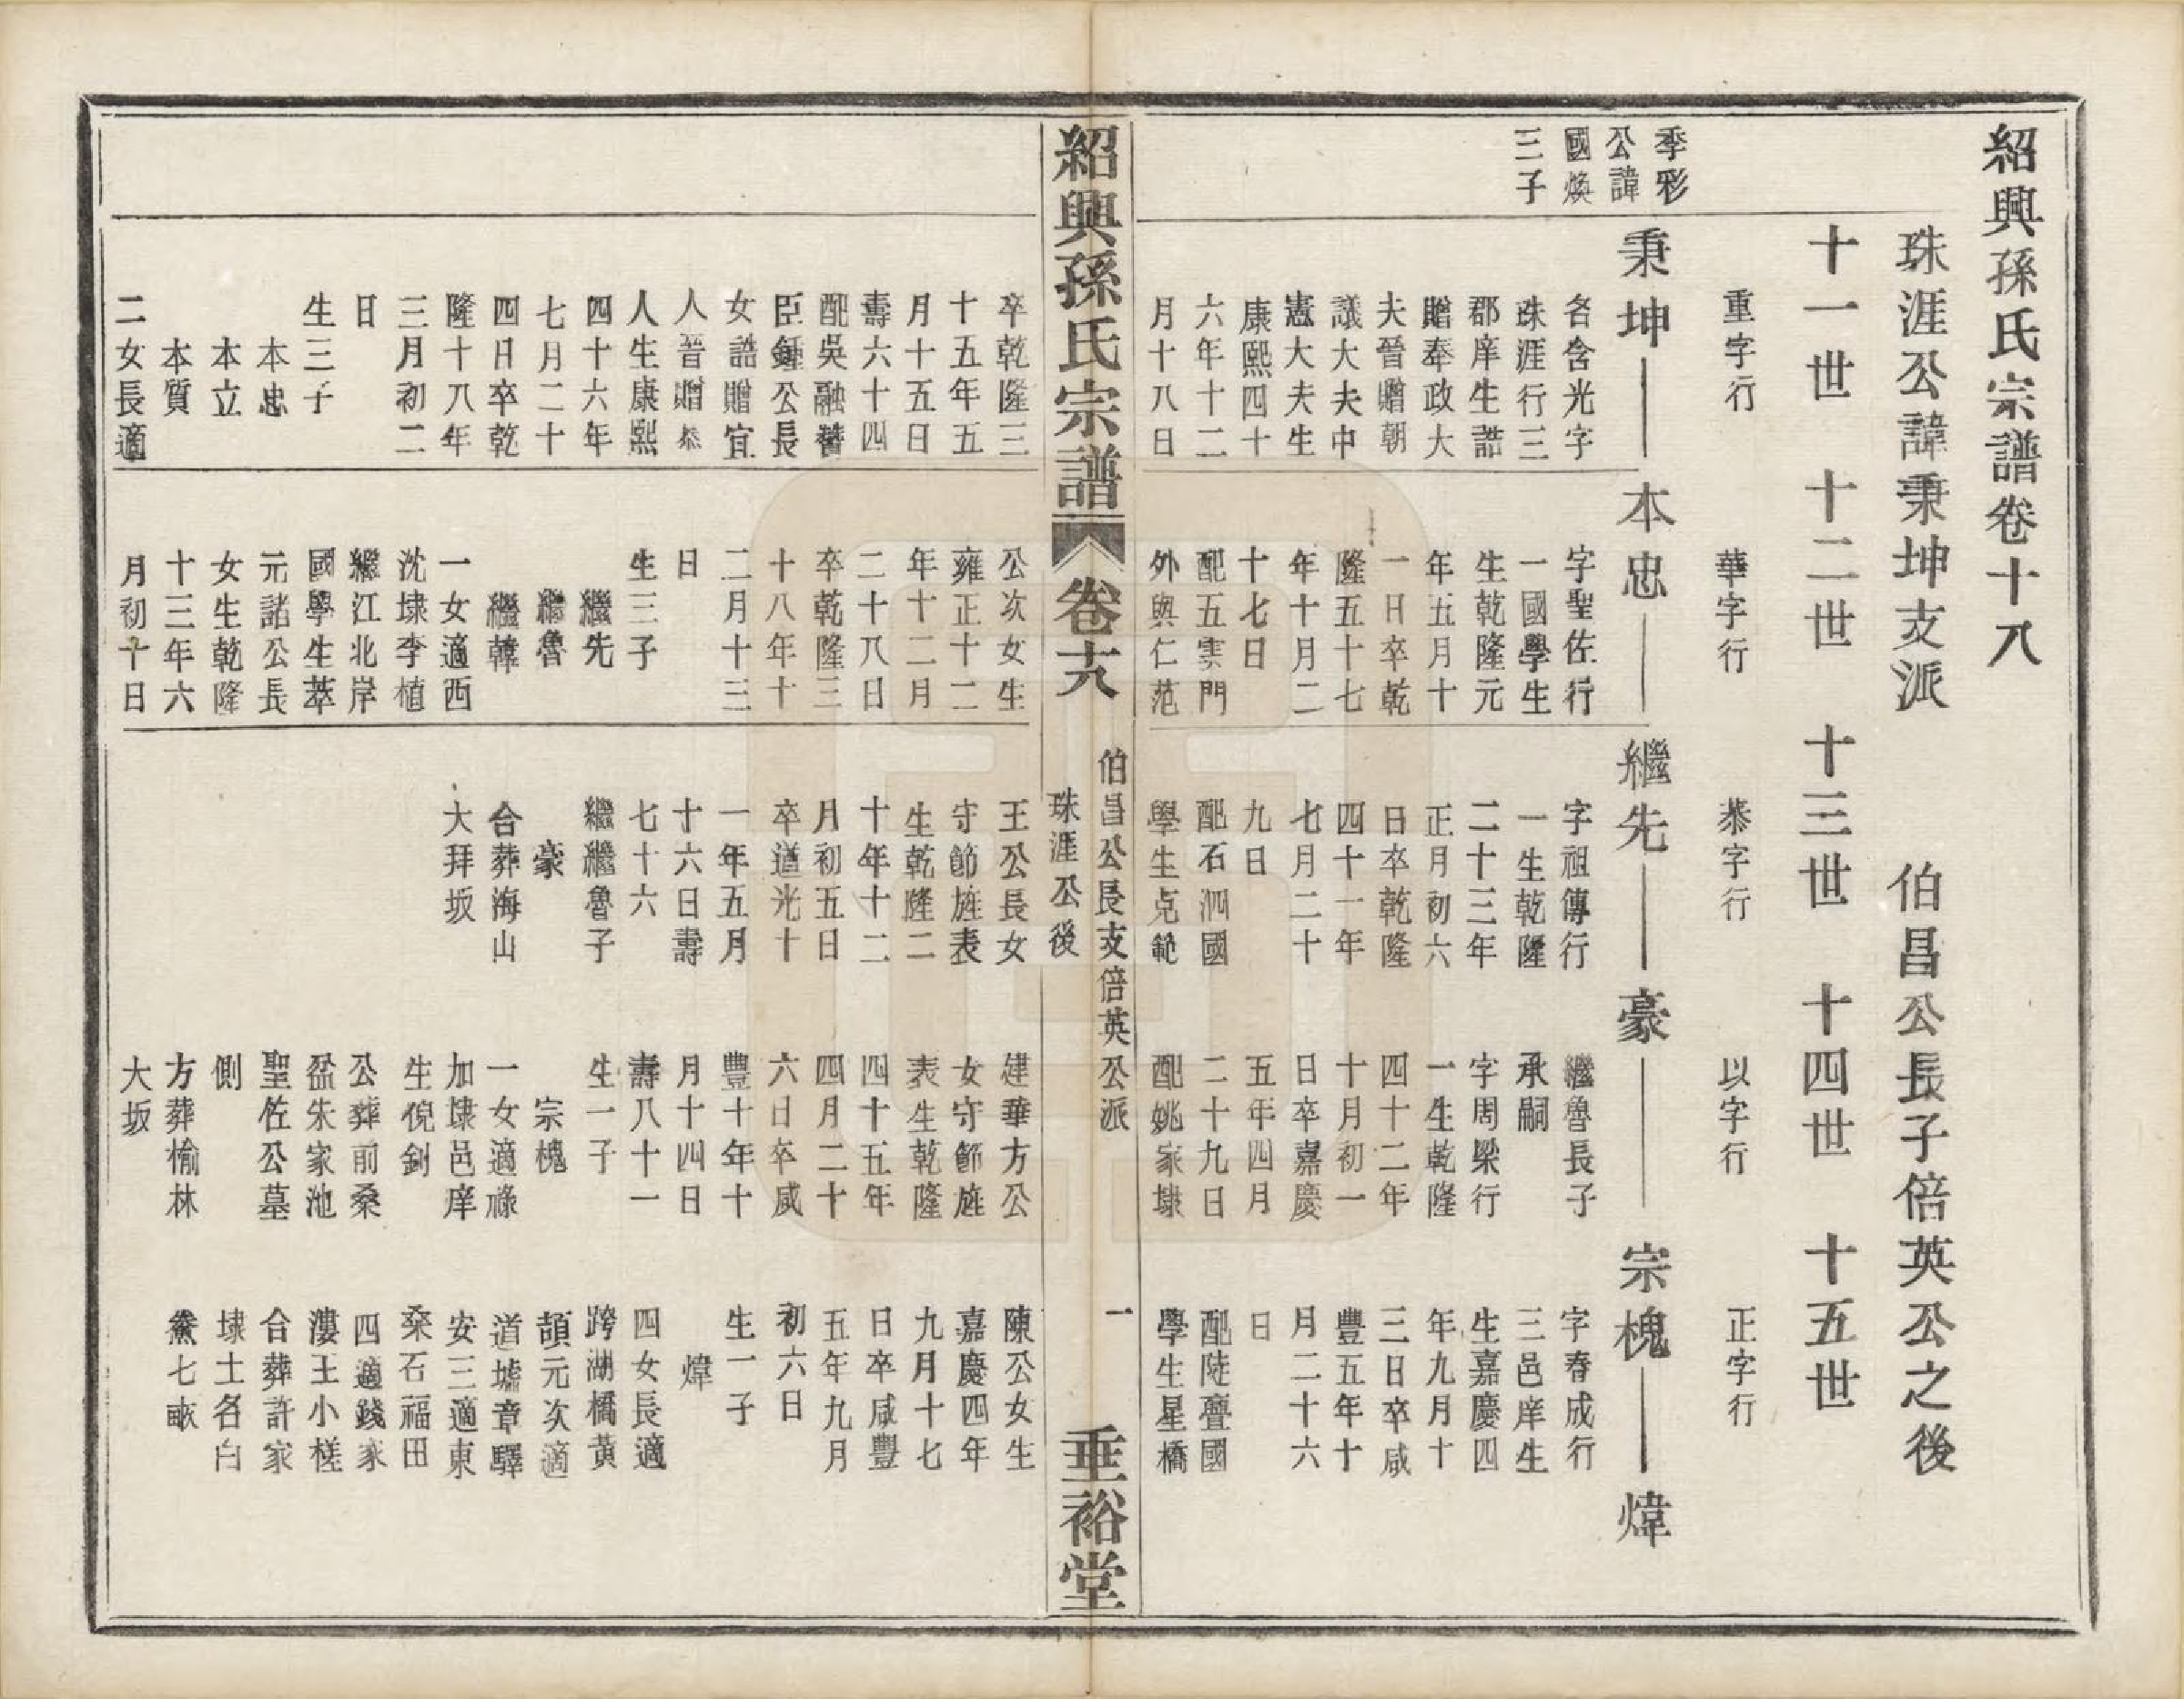 紹興孫氏宗譜卷十八
珠涯公諱秉坤支派
伯昌公長子倍英公之後
十一世
十二世
十三世
十四世
十五世
重字行
華字行
恭字行
以字行
正字行
季彩
公諱
國煥
三子
秉坤
本忠
繼先
豪
宗槐
煒
名含光字
珠涯行三
郡庠生誥
贈奉政大
夫晉贈朝
議大夫中
憲大夫生
康熙四十
六年十二
月十八日
卒乾隆三
十五年五
月十五日
壽六十四
配吳融替
臣鍾公長
女誥贈宜
人晉贈恭
人生康熙
四十六年
七月二十
四日卒乾
隆十八年
三月初二
日
生三子
本忠
本立
本質
二女長適
字聖佐行
一國學生
生乾隆元
年五月十
一日卒乾
隆五十七
年十月二
十七日
配五雲門
外與仁范
公次女生
雍正十二
年十二月
二十八日
卒乾隆三
十八年十
二月十三
日
生三子
繼先
繼魯
繼韓
一女適西
沈埭李植
繼江北岸
國學生萃
元諾公長
女生乾隆
十三年六
月初十日
字祖傳行
一生乾隆
二十三年
正月初六
日卒乾隆
四十一年
七月二十
九日
配石泗國
學生克範
王公長女
守節旌表
生乾隆二
十年十二
月初五日
卒道光十
一年五月
十六日壽
七十六
繼繼魯子
豪
合葬海山
大拜坂
繼魯長子
承嗣
字周梁行
一生乾隆
四十二年
十月初一
日卒嘉慶
五年四月
二十九日
配姚家埭
建華方公
女守節旌
表生乾隆
四十五年
四月二十
六日卒咸
豐十年十
月十四日
壽八十一
生一子
宗槐
一女適祿
加埭邑庠
生倪釗
公葬前桑
盆朱家池
聖佐公墓
側
方葬榆林
大坂
字春成行
三邑庠生
生嘉慶四
年九月十
三日卒咸
豐五年十
月二十六
日
配陡亹國
學生星橋
陳公女生
嘉慶四年
九月十七
日卒咸豐
五年九月
初六日
生一子
煒
四女長適
跨湖橋黃
頡元次適
道墟章驛
安三適東
桑石福田
四適錢家
漊王小槎
合葬許家
埭土名白
鯗七畝
紹興孫氏宗譜
卷十八
伯昌公長支倍英公派
珠涯公後
一
垂裕堂